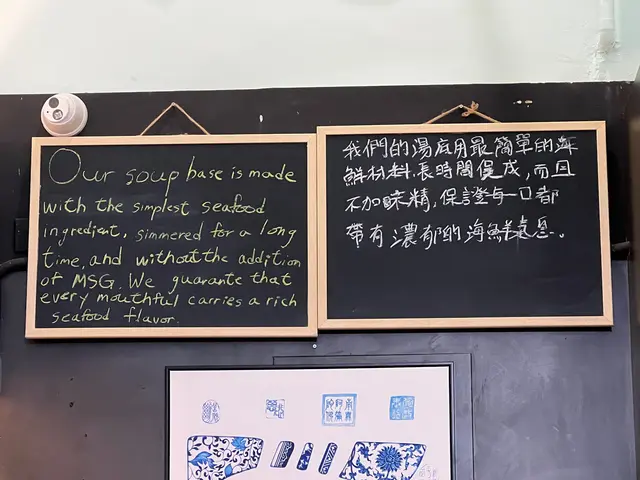 Our soup base is made
with the simplest seafood
ingredient, simmered for a long
time, and without the addition
of MSG. We guarante that
every mouthful carries a rich
seafood flavor.
我們的湯底用最簡單的海
鮮材料,長時間慢成,而且
不加味精,保證每一口都
帶有濃郁的海鮮氣息。